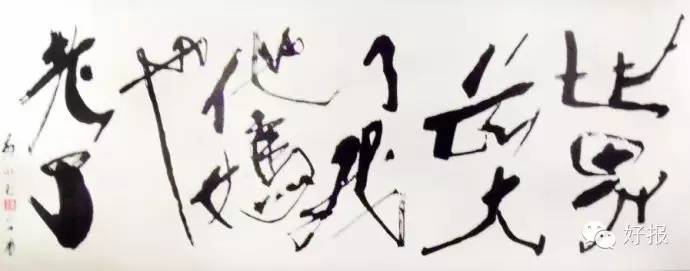 世界
大
了我
他妈
也
老了
好报